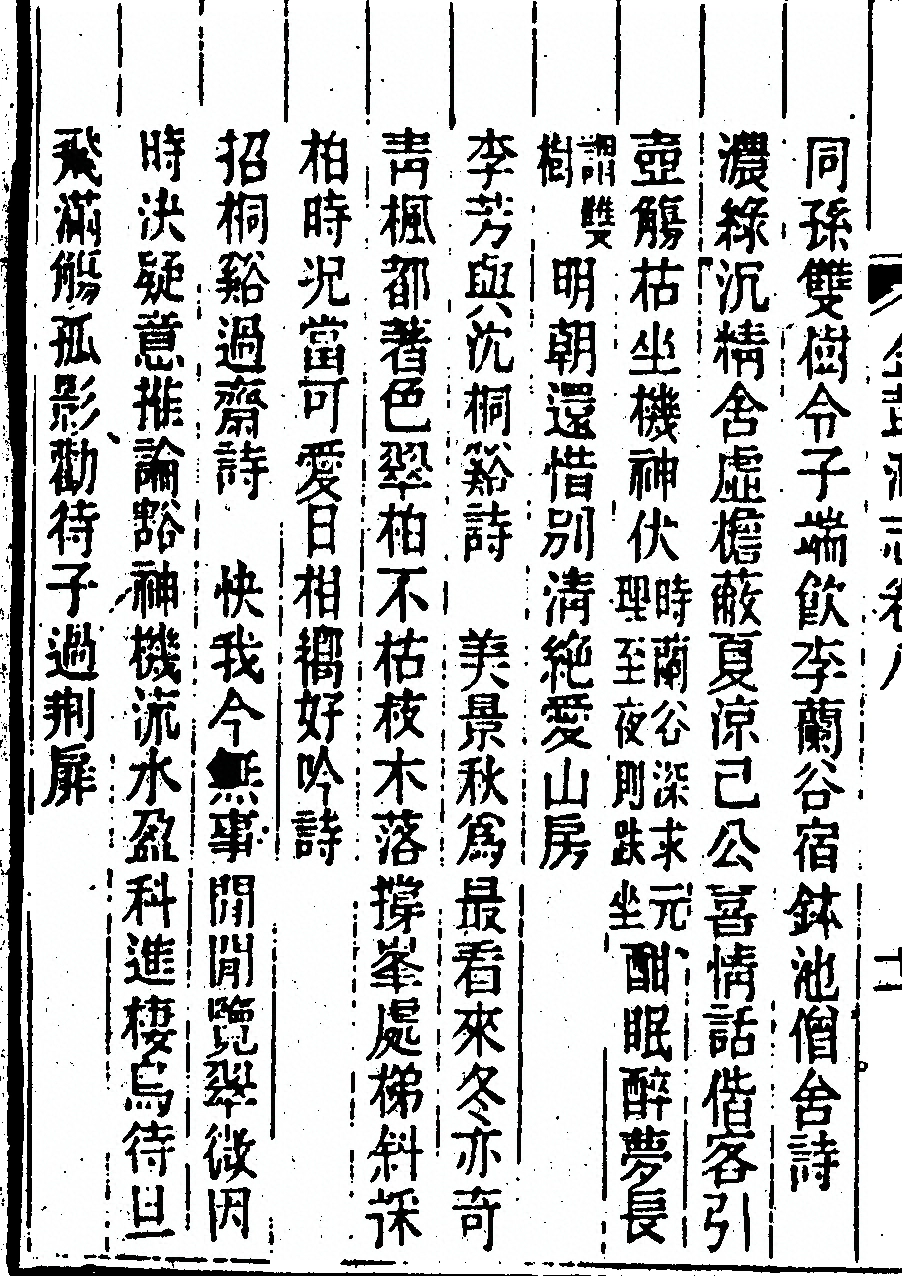 同孫雙樹令子端飲李蘭谷宿鉢池僧舍詩
濃綠沉精舍虛檐蔽夏涼己公喜情話偕客引
壺觴枯坐機神伏時蘭谷深求元理至夜則趺坐酣眠醉夢長
謂雙樹明朝還惜別清絶愛山房
李芳與沈桐谿詩　美景秋為最看來冬亦奇
青楓都著色翠柏不枯枝木落撐峯處梯斜採
柏時況當可愛日相嚮好吟詩
招桐谿過齋詩　快我今無事閒閒覽翠微因
時決疑意推論豁神機流水盈科進棲烏待旦
飛滿觴孤影勸待子過荆扉